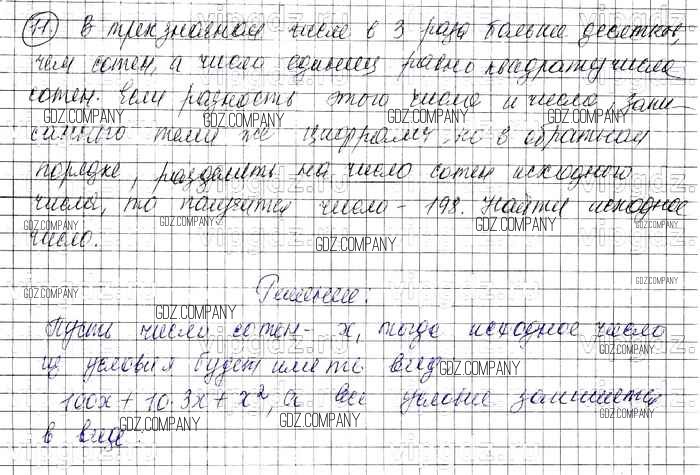 11. В трехзначном числе в 3 раза больше десятков,
чем сотен, а число единиц равно квадрату числа
сотен. Если разность этого числа и числа, запи-
санного теми же цифрами, но в обратном
порядке, разделить на число сотен исходного
числа, то получится число - 198. Найти исходное
число.
Решение:
Пусть число сотен - x, тогда исходное число
из условия будет иметь вид
100x + 10·3x + x², а все условие запишется
в виде:
GDZ.COMPANY
vipgdz.ru